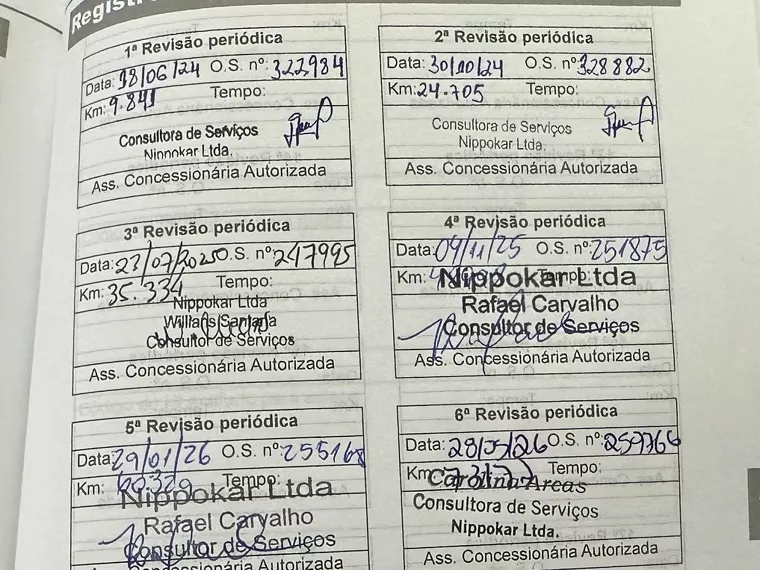 Registr
1ª Revisão periódica
Data: 18/06/24 O.S. nº: 322984
Km: 9.841 Tempo:
Consultora de Serviços
Nippokar Ltda.
Ass. Concessionária Autorizada
2ª Revisão periódica
Data: 30/10/24 O.S. nº: 328882
Km: 24.705 Tempo:
Consultora de Serviços
Nippokar Ltda.
Ass. Concessionária Autorizada
3ª Revisão periódica
Data: 23/07/2025 O.S. nº: 247995
Km: 35.334 Tempo:
Nippokar Ltda
Willans Santana
Consultor de Serviços
Ass. Concessionária Autorizada
4ª Revisão periódica
Data: 09/11/25 O.S. nº: 251875
Km: Tempo:
Nippokar Ltda
Rafael Carvalho
Consultor de Serviços
Ass. Concessionária Autorizada
5ª Revisão periódica
Data: 29/01/26 O.S. nº: 255168
Km: 60329 Tempo:
Nippokar Ltda
Rafael Carvalho
Consultor de Serviços
Ass. Concessionária Autorizada
6ª Revisão periódica
Data: 28/05/26 O.S. nº: 259766
Km: Tempo:
Carolina Areas
Consultora de Serviços
Nippokar Ltda.
Ass. Concessionária Autorizada